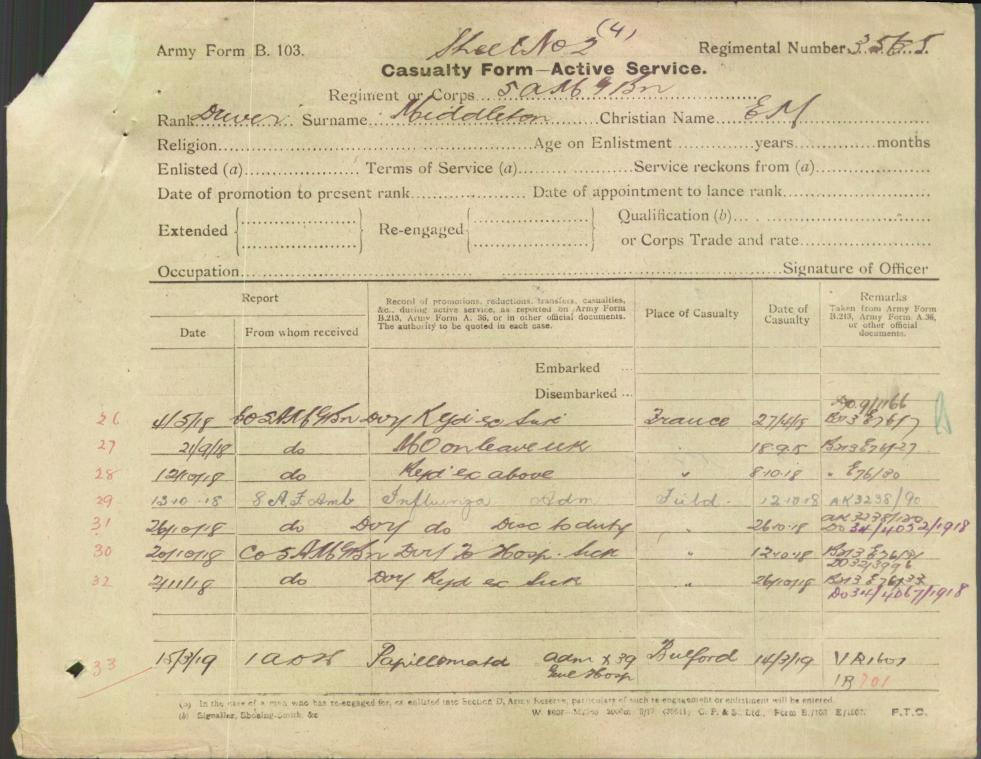 (4)
Army Form B. 103. Sheet No 2 Regimental Number 3565
Casualty Form—Active Service.
Regiment or Corps 5 AMG Bn
Rank Driver Surname Middleton Christian Name E M
Religion Age on Enlistment years months
Enlisted (a) Terms of Service (a) Service reckons from (a)
Date of promotion to present rank Date of appointment to lance rank
Extended Re-engaged Qualification (b)
or Corps Trade and rate
Occupation Signature of Officer
Report Record of promotions, reductions, transfers, casualties, &c., during active service, as reported on Army Form B.213, Army Form A. 36, or in other official documents. The authority to be quoted in each case. Place of Casualty Date of Casualty Remarks Taken from Army Form B.213, Army Form A.36, or other official documents.
Date From whom received
Embarked
Disembarked
26 4/5/18 CO 5 AMG Bn Dvr Rejd ex Sick France 27/4/18
27 21/9/18 do on leave UK 18.9.18
28 12/10/18 do Rejd ex above " 8.10.18 " E76/30
29 13.10.18 Amb Influenza Adm Field 12.10.18 AK3238/90
31 26/10/18 do Dvr do Disc to duty " 26.10.18 DO34/4032/1918
30 20/10/18 CO 5 AMG Bn Dvr To Hosp. Sick " 12.10.18
32 2/11/18 do Dvr Rejd ex Sick " 26/10/18
DO34/4067/1918
33 15/3/19 Papillomata adm Bulford 14/3/19
Hosp 701
(a) In the case of a man who has re-engaged for, or enlisted into Section D, Army Reserve, particulars of such re-engagement or enlistment will be entered.
(b) Signaller, Shoeing-Smith, &c F.T.O.